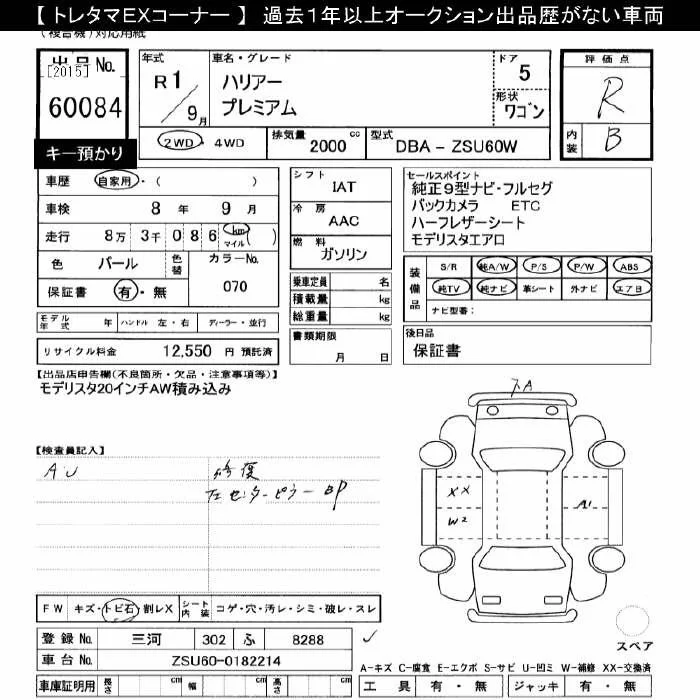 【 トレタマEXコーナー 】 過去1年以上オークション出品歴がない車両
(複合機)対応用紙
出品No.
[2015]
60084
キー預かり
年式
R 1
9 月
車名・グレード
ハリアー
プレミアム
ドア
5
形状
ワゴン
評価点
R
内装
B
2WD ・ 4WD
排気量
2000 cc
型式
DBA - ZSU60W
車歴 自家用・( )
車検 8 年 9 月
走行 8万 3千 0 8 6 km マイル ( )
色 パール 色替 カラーNo.
保証書 有・無 070
モデル年式 年 ハンドル 左・右 ディーラー・並行
リサイクル料金 12,550 円 預託済
シフト
IAT
冷房
AAC
燃料
ガソリン
乗車定員 名
積載量 kg
総重量 kg
書類期限
月 日
セールスポイント
純正9型ナビ・フルセグ
バックカメラ ETC
ハーフレザーシート
モデリスタエアロ
装備品
S/R 純A/W P/S P/W ABS
純TV 純ナビ 革シート 外ナビ エアB
ナビ型番:
後日品
保証書
【出品店申告欄(不良箇所・欠品・注意事項等)】
モデリスタ20インチAW積み込み
【検査員記入】
AU
修復
左センターピラーBP
下A
XX
W2
A1
FW キズ・トビ石・割レX シート内装 コゲ・穴・汚レ・シミ・破レ・スレ
登録No. 三河 302 ふ 8288
車台No. ZSU60-0182214
車庫証明用 長さ cm 幅 cm 高さ cm
スペア
A-キズ C-腐食 E-エクボ S-サビ U-凹ミ W-補修 XX-交換済
工具 有・無 ジャッキ 有・無